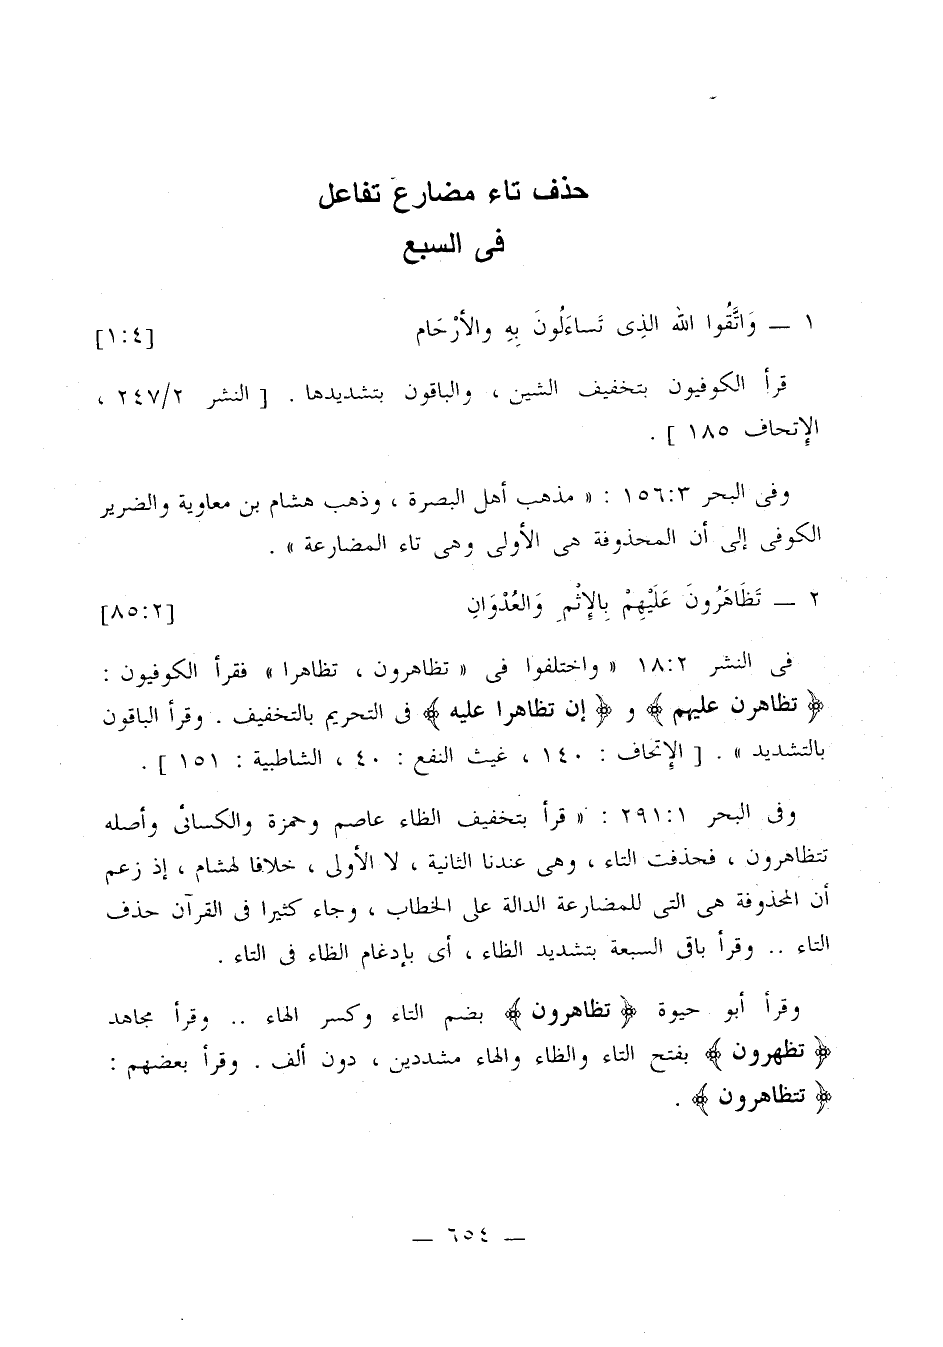 حذف تاء مضارع تفاعل
فى السبع
١ ــ وَاتَّقُوا الله الذِى تَساءَلُونَ بِهِ والأرْحَام [١:٤]
قرأ الكوفيون بتخفيف الشين ، والباقون بتشديدها . [ النشر ٢٤٧/٢ ،
الإتحاف ١٨٥ ] .
وفى البحر ١٥٦:٣ : « مذهب أهل البصرة ، وذهب هشام بن معاوية والضرير
الكوفى إلى أن المحذوفة هى الأولى وهى تاء المضارعة » .
٢ ــ تَظَاهَرُونَ عَلَيْهِمْ بِالإثْمِ وَالعُدْوَانِ [٨٥:٢]
فى النشر ١٨:٢ « واختلفوا فى « تظاهرون ، تظاهرا » فقرأ الكوفيون :
﴿ تظاهرن عليهم ﴾ و ﴿ إن تظاهرا عليه ﴾ فى التحريم بالتخفيف . وقرأ الباقون
بالتشديد » . [ الإتحاف : ١٤٠ ، غيث النفع : ٤٠ ، الشاطبية : ١٥١ ] .
وفى البحر ٢٩١:١ : « قرأ بتخفيف الظاء عاصم وحمزة والكسائى وأصله
تتظاهرون ، فحذفت التاء ، وهى عندنا الثانية ، لا الأولى ، خلافا لهشام ، إذ زعم
أن المحذوفة هى التى للمضارعة الدالة على الخطاب ، وجاء كثيرا فى القرآن حذف
التاء .. وقرأ باقى السبعة بتشديد الظاء ، أى بإدغام الظاء فى التاء .
وقرأ أبو حيوة ﴿ تظاهرون ﴾ بضم التاء وكسر الهاء .. وقرأ مجاهد
﴿ تظهرون ﴾ بفتح التاء والظاء والهاء مشددين ، دون ألف . وقرأ بعضهم :
﴿ تتظاهرون ﴾ .
ــ ٦٥٤ ــ